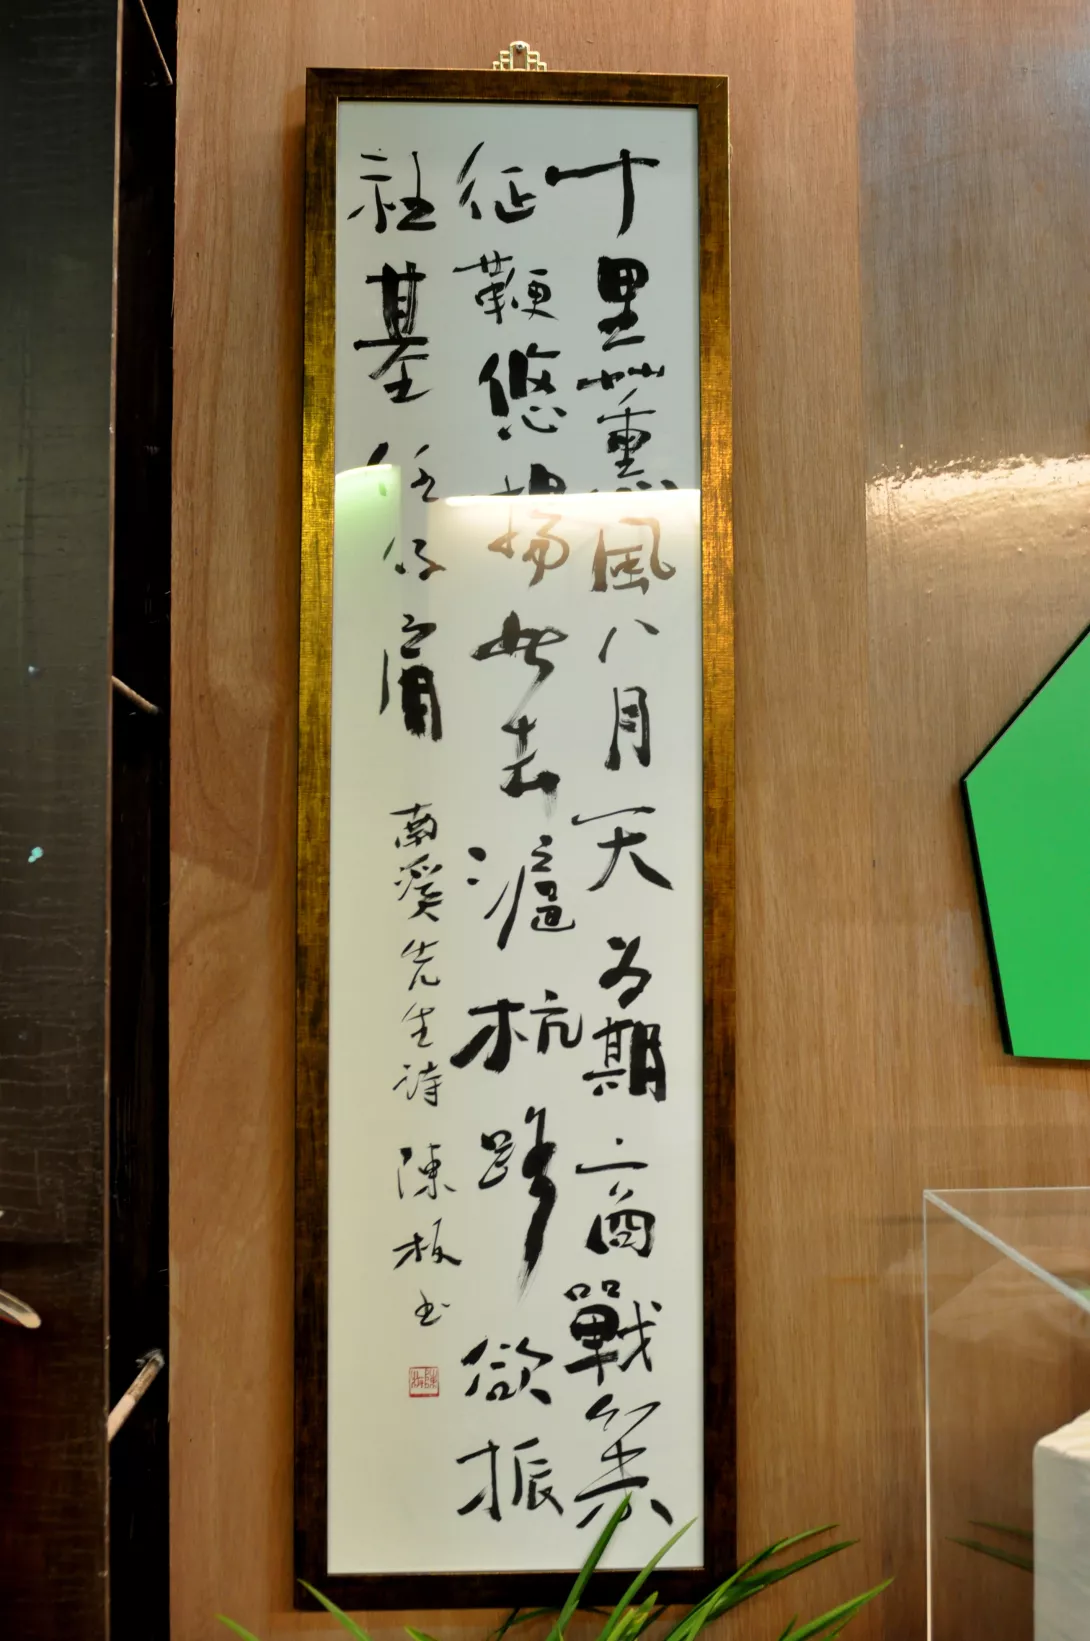 十里薰風八月天為期商戰策
征鞭悠揚此去滬杭路欲振
社基任仔肩 南溪先生詩 陳 書